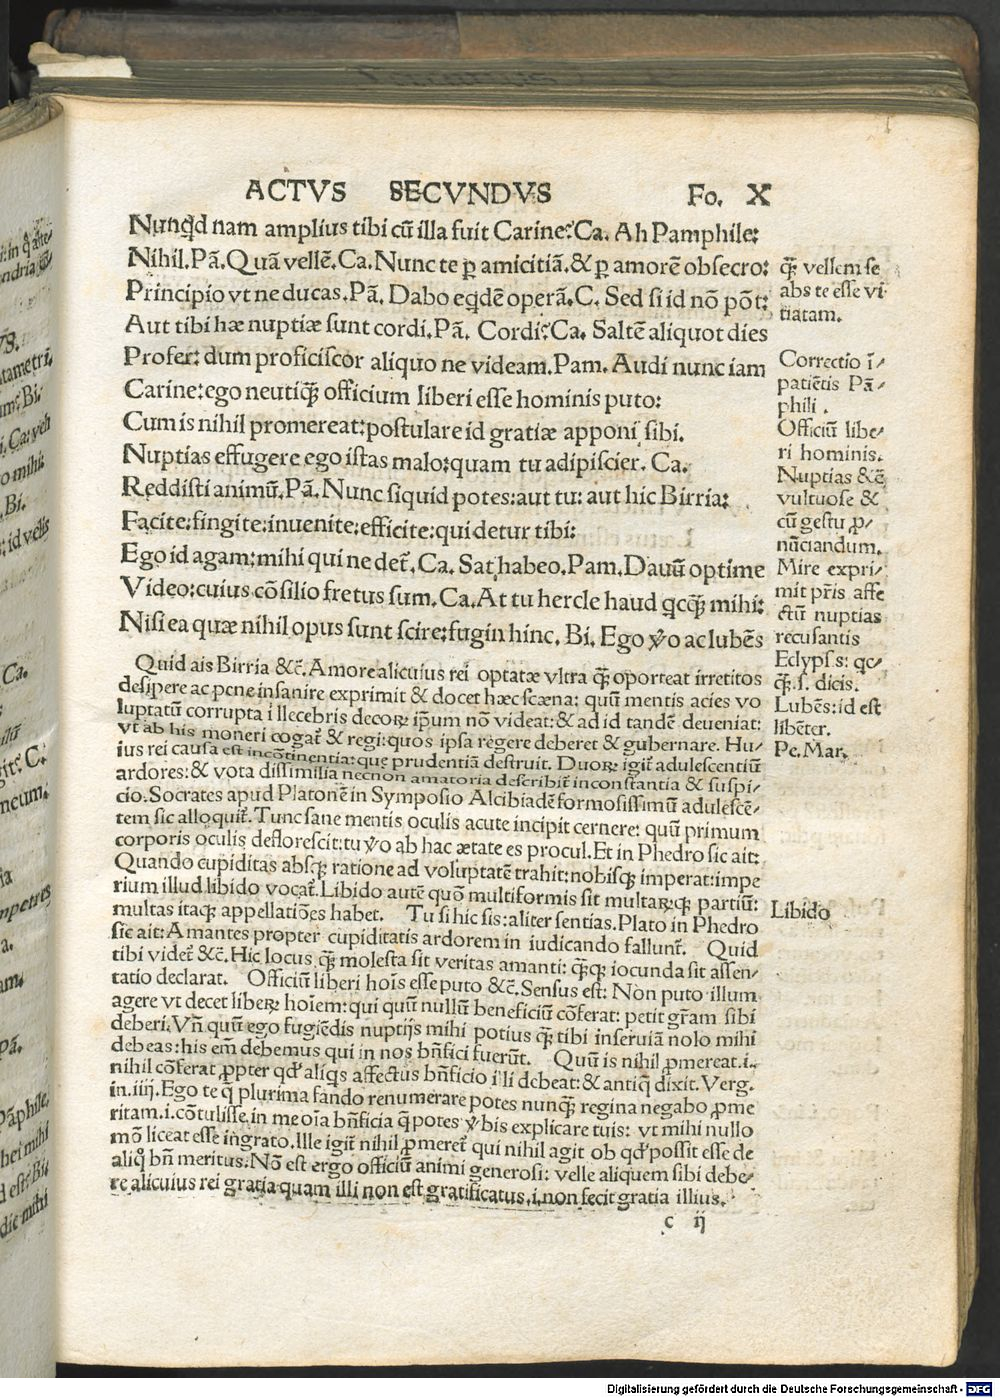 ACTVS SECVNDVS Fo. X
Nunqd nam amplius tibi cū illa fuit Carine? Ca. Ah Pamphile:
Nihil. Pā. Quā vellē. Ca. Nunc te ꝑ amicitiā. & ꝑ amorē obsecro:
Principio vt ne ducas. Pā. Dabo eqdē operā. C. Sed si id nō pōt:
Aut tibi hæ nuptiæ sunt cordi. Pā. Cordi? Ca. Saltē aliquot dies
Profer: dum proficiscor aliquo ne videam. Pam. Audi nunc iam
Carine: ego neutiqꝫ officium liberi esse hominis puto:
Cum is nihil promereat: postulare id gratiæ apponi sibi.
Nuptias effugere ego istas malo: quam tu adipiscier. Ca.
Reddisti animū. Pā. Nunc siquid potes: aut tu: aut hic Birria:
Facite: fingite: inuenite: efficite: qui detur tibi:
Ego id agam: mihi qui ne det̄. Ca. Sat habeo. Pam. Dauū optime
Video: cuius cōsilio fretus sum. Ca. At tu hercle haud qcqꝫ mihi:
Nisi ea quæ nihil opus sunt scire: fugin hinc. Bi. Ego ꝟo ac lubēs
qꝫ vellem se
abs te esse vi
tiatam.
Correctio ī-
patiētis Pā-
phili.
Officiū libe-
ri hominis.
Nuptias &c̄
vultuose &
cū gestu ꝓ-
nūciandum.
Mire expri-
mit pr̄is affe
ctū nuptias
recusantis
Eclypsis: qc-
qꝫ. s. dicis.
Lubēs: id est
libēter.
Pe. Mar.
Quid ais Birria &c̄. Amore alicuius rei optatæ vltra qꝫ oporteat irretitos
desipere ac pene insanire exprimit & docet hæc scæna: quū mentis acies vo
luptatū corrupta illecebris decoꝝ ip̄um nō videat: & ad id tandē deueniat:
vt ab his moneri cogat̄ & regi: quos ipsa regere deberet & gubernare. Hu-
ius rei causa est incōtinentia: que prudentiā destruit. Duoꝝ igit̄ adulescentiū
ardores: & vota dissimilia necnon amatoria describit̄ inconstantia & suspi-
cio. Socrates apud Platonē in Symposio Alcibiadē formosissimū adulescē-
tem sic alloquit̄. Tunc sane mentis oculis acute incipit cernere: quū primum
corporis oculis deflorescit: tu ꝟo ab hac ætate es procul. Et in Phedro sic ait:
Quando cupiditas absqꝫ ratione ad voluptatē trahit: nobisqꝫ imperat: impe
rium illud libido vocat̄. Libido autē quō multiformis sit multaꝝqꝫ partiū:
multas itaqꝫ appellatiōes habet. Tu si hic sis: aliter sentias. Plato in Phedro
sic ait: Amantes propter cupiditatis ardorem in iudicando fallunt̄. Quid
tibi videt̄ &c̄. Hic locus qꝫ molesta sit veritas amanti: qꝫqꝫ iocunda sit assen-
tatio declarat. Officiū liberi hoīs esse puto &c̄. Sensus est: Non puto illum
agere vt decet libeꝝ hoīem: qui quū nullū beneficiū cōferat: petit gr̄am sibi
deberi. Vn̄ quū ego fugiēdis nuptijs mihi potius qꝫ tibi inseruiā nolo mihi
debeas: his em̄ debemus qui in nos bn̄fici fuerūt. Quū is nihil ꝓmereat. i.
nihil cōferat ꝓpter qd aliqs affectus bn̄ficio illi debeat: & antiq dixit. Verg.
in. iiij. Ego te q̄ plurima fando renumerare potes nunqꝫ regina negabo ꝓme
ritam. i. cōtulisse in me oīa bn̄ficia q̄ potes ꝟbis explicare tuis: vt mihi nullo
mō liceat esse ingrato. Ille igit̄ nihil ꝓmeret̄ qui nihil agit ob qd possit esse de
aliq̊ bn̄ meritus. Nō est ergo officiū animi generosi: velle aliquem sibi debe-
re alicuius rei gratia quam illi non est gratificatus. i. non fecit gratia illius.
Libido
c ij
Digitalisierung gefördert durch die Deutsche Forschungsgemeinschaft - DFG